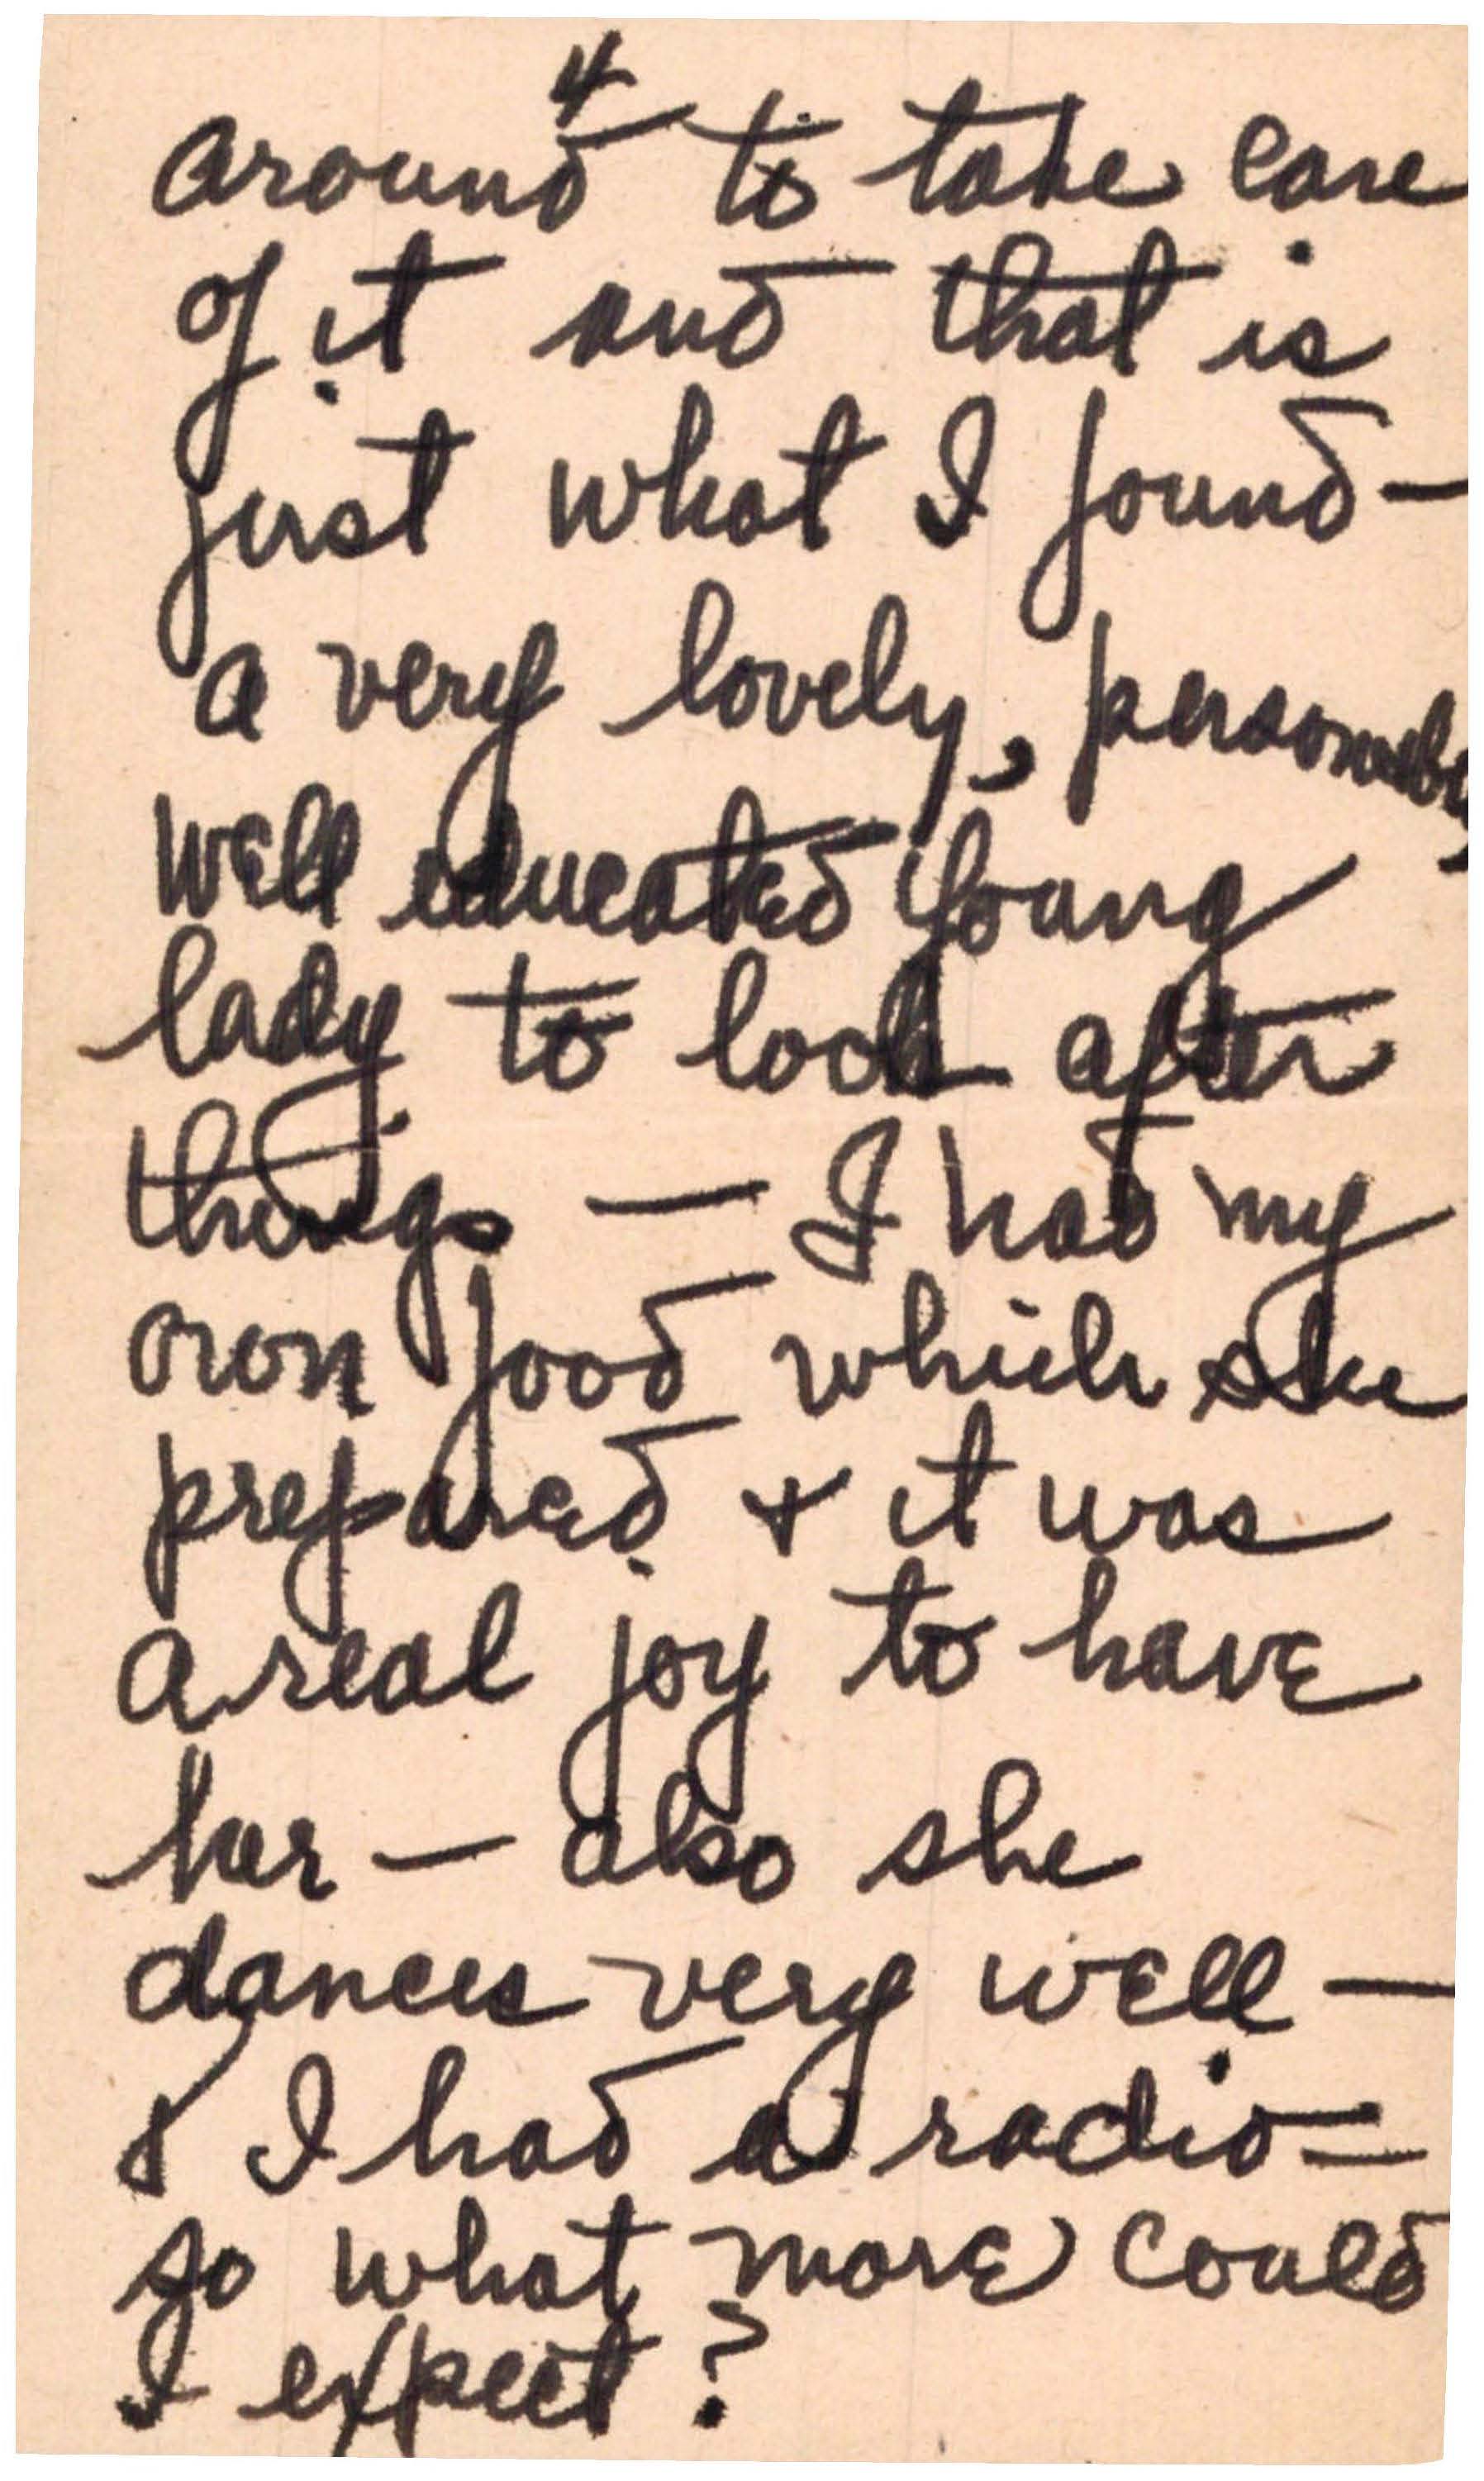 4
around to take care
of it and that is
just what I found —
a very lovely, personable,
well educated young
lady to look after
things — I had my
own food which she
prepared + it was
a real joy to have
her — also she
dances very well —
& I had a radio —
so what more could
I expect?